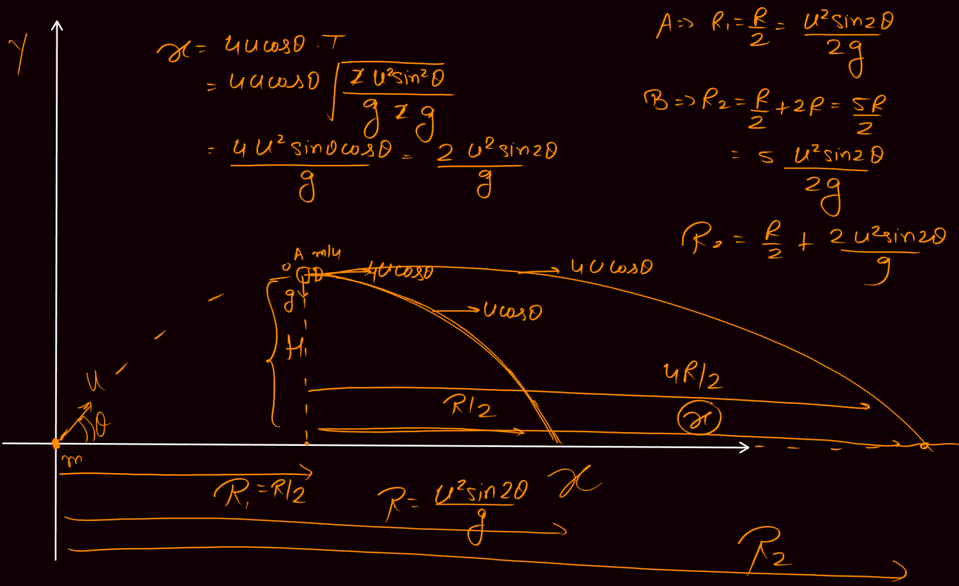 y
x = 4ucosθ . T
= 4ucosθ √(2 u²sin²θ / g 2 g)
= 4u²sinθcosθ / g = 2 u²sin2θ / g
A => R₁ = R/2 = u²sin2θ / 2g
B => R₂ = R/2 + 2R = 5R/2
= 5 u²sin2θ / 2g
R₂ = R/2 + 2u²sin2θ / g
A m/4
4ucosθ
4ucosθ
g
ucosθ
H
4R/2
u
R/2
x
θ
m
R₁ = R/2
x
R = u²sin2θ / g
R₂